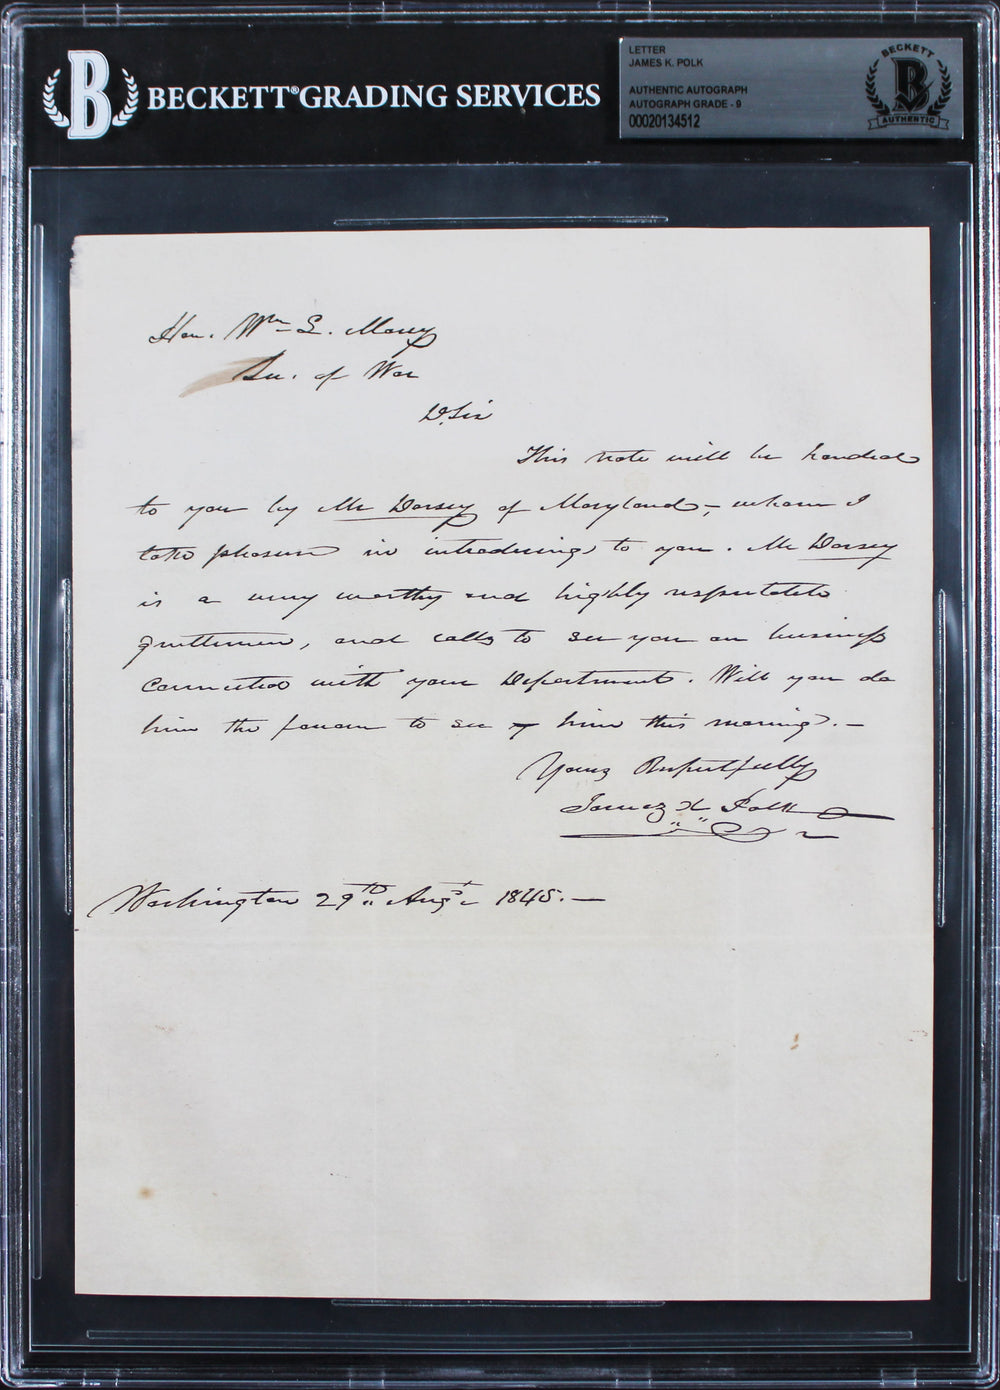 BECKETT® GRADING SERVICES
LETTER
JAMES K. POLK
AUTHENTIC AUTOGRAPH
AUTOGRAPH GRADE - 9
00020134512
BECKETT
B
AUTHENTIC
B
Hon. Wm. L. Marcy
Sec. of War
D. Sir
This note will be handed
to you by Mr Dorsey of Maryland, – whom I
take pleasure in introducing to you. Mr Dorsey
is a very worthy and highly respectable
gentleman, and calls to see you on business
connected with your Department. Will you do
him the favour to see him this morning. –
Yours Respectfully
James K. Polk
Washington 29th Augt. 1845. –